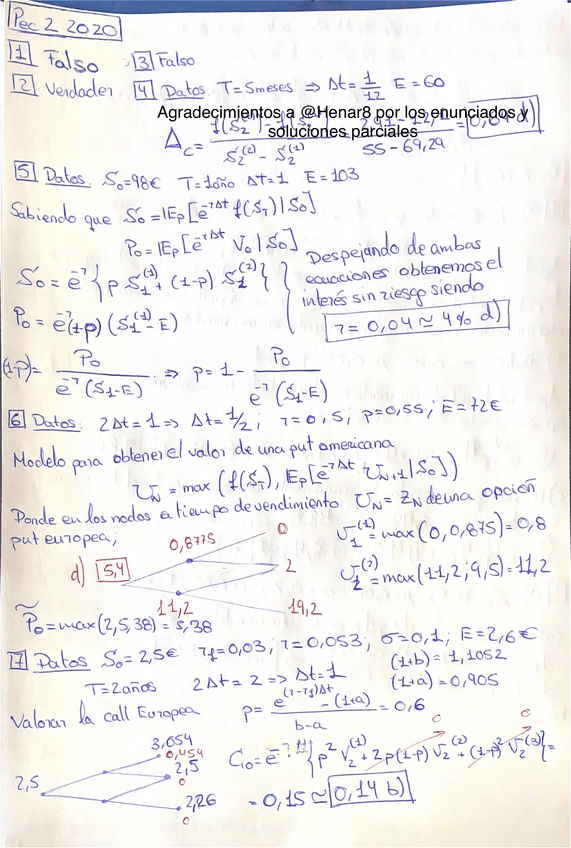 Pec 2 2020
1 Falso 3 Falso
2 Verdader 4 Datos. T=5meses ⇒ Δt=1/12 E=60
Agradecimientos a @Henar8 por los enunciados y
soluciones parciales
Δc= S2(2) - S2(1) 55-69,29 d)
5 Datos. S0=98€ T=1año ΔT=1 E=103
Sabiendo que S0=IEp[e^-rΔt f(ST)|S0]
P0=IEp[e^-rΔt V0|S0]
S0=e^-r{p S1(1)+(1-p) S1(2)}
P0=e^-r(1-p)(S1(1)-E)
Despejando de ambas
ecuaciones obtenemos el
interés sin riesgo siendo
r=0,04≃4% d)
(1-p)= P0/e^-r(S1-E) ⇒ p=1- P0/e^-r(S1-E)
6 Datos: 2Δt=1 ⇒ Δt=1/2; r=0,5; p=0,55; E=72€
Modelo para obtener el valor de una put americana
UN=max(f(ST), IEp[e^-rΔt UN+1|S0])
Donde en los nodos a tiempo de vendimiento UN=ZN de una opción
put europea;
0,8775 0
d) 5,4 2
11,2 19,2
U1(1)=max(0,0,875)=0,8
U1(2)=max(11,2;9,5)=11,2
P0=max(2,5,38)=5,38
7 Datos S0=2,5€ rf=0,03; r=0,053; σ=0,1; E=2,6€
T=2años 2Δt=2 ⇒ Δt=1 (1+b)=1,1052
(1+a)=0,905
Valorar la call Europea p= e^(r-rf)Δt - (1+a) / b-a = 0,6
3,054
0,454
2,5 2,5
0
2,26
0
C0=e^-r {p² V2(1)+2p(1-p) V2(2)+(1-p)² V2(3)}=
0 0
=0,15≃0,14 b)